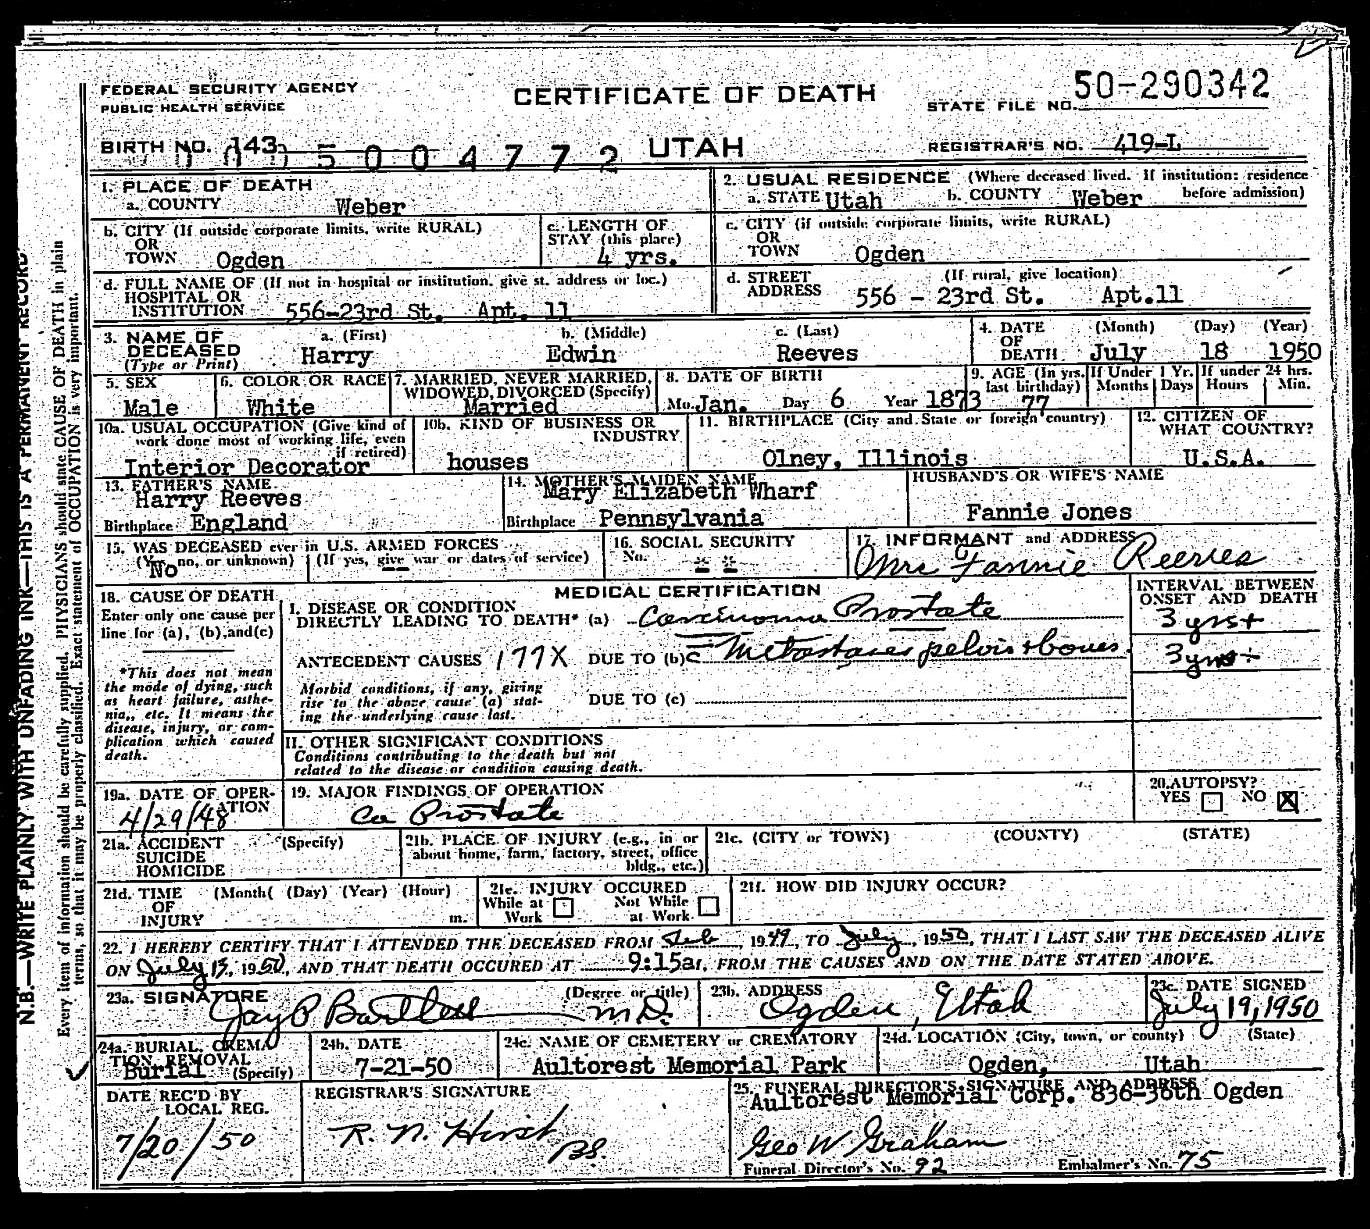 FEDERAL SECURITY AGENCY
PUBLIC HEALTH SERVICE
CERTIFICATE OF DEATH
STATE FILE NO. 50-290342
BIRTH NO. 143
5004772
UTAH
REGISTRAR'S NO. 419-L
1. PLACE OF DEATH
a. COUNTY Weber
2. USUAL RESIDENCE (Where deceased lived. If institution: residence before admission)
a. STATE Utah b. COUNTY Weber
b. CITY (If outside corporate limits, write RURAL)
OR
TOWN Ogden
c. LENGTH OF
STAY (this place)
4 yrs.
c. CITY (if outside corporate limits, write RURAL)
OR
TOWN Ogden
d. FULL NAME OF (If not in hospital or institution, give st. address or loc.)
HOSPITAL OR
INSTITUTION 556-23rd St. Apt. 11
d. STREET (If rural, give location)
ADDRESS 556 - 23rd St. Apt.11
3. NAME OF
DECEASED
(Type or Print)
a. (First) b. (Middle) c. (Last)
Harry Edwin Reeves
4. DATE (Month) (Day) (Year)
OF
DEATH July 18 1950
5. SEX
Male
6. COLOR OR RACE
White
7. MARRIED, NEVER MARRIED,
WIDOWED, DIVORCED (Specify)
Married
8. DATE OF BIRTH
Mo. Jan. Day 6 Year 1873
9. AGE (In yrs. last birthday)
77
If Under 1 Yr.
Months Days
If under 24 hrs.
Hours Min.
10a. USUAL OCCUPATION (Give kind of
work done most of working life, even
if retired)
Interior Decorator
10b. KIND OF BUSINESS OR
INDUSTRY
houses
11. BIRTHPLACE (City and State or foreign country)
Olney, Illinois
12. CITIZEN OF
WHAT COUNTRY?
U.S.A.
13. FATHER'S NAME
Harry Reeves
Birthplace England
14. MOTHER'S MAIDEN NAME
Mary Elizabeth Wharf
Birthplace Pennsylvania
HUSBAND'S OR WIFE'S NAME
Fannie Jones
15. WAS DECEASED ever in U.S. ARMED FORCES
(Yes, no, or unknown) (If yes, give war or dates of service)
No --
16. SOCIAL SECURITY
No. - -
17. INFORMANT and ADDRESS
Mrs Fannie Reeves
18. CAUSE OF DEATH
Enter only one cause per
line for (a), (b), and (c)
*This does not mean
the mode of dying, such
as heart failure, asthe-
nia, etc. It means the
disease, injury, or com
plication which caused
death.
MEDICAL CERTIFICATION
INTERVAL BETWEEN
ONSET AND DEATH
I. DISEASE OR CONDITION
DIRECTLY LEADING TO DEATH* (a) Carcinoma Prostate
3 yrs+
ANTECEDENT CAUSES 177X DUE TO (b) c Metastases pelvis + bones.
3 yrs
Morbid conditions, if any, giving
rise to the above cause (a) stat-
ing the underlying cause last.
DUE TO (c)
II. OTHER SIGNIFICANT CONDITIONS
Conditions contributing to the death but not
related to the disease or condition causing death.
19a. DATE OF OPER-
ATION
4/29/48
19. MAJOR FINDINGS OF OPERATION
Ca Prostate
20. AUTOPSY?
YES NO X
21a. ACCIDENT (Specify)
SUICIDE
HOMICIDE
21b. PLACE OF INJURY (e.g., in or
about home, farm, factory, street, office
bldg., etc.)
21c. (CITY or TOWN) (COUNTY) (STATE)
21d. TIME (Month( (Day) (Year) (Hour)
OF
INJURY m.
21e. INJURY OCCURED
While at Work Not While at Work
21f. HOW DID INJURY OCCUR?
22. I HEREBY CERTIFY THAT I ATTENDED THE DECEASED FROM Feb, 1949, TO July, 1950, THAT I LAST SAW THE DECEASED ALIVE
ON July 13, 1950, AND THAT DEATH OCCURED AT 9:15a, FROM THE CAUSES AND ON THE DATE STATED ABOVE.
23a. SIGNATURE (Degree or title)
Jay P Bartlett M.D.
23b. ADDRESS
Ogden, Utah
23c. DATE SIGNED
July 19, 1950
24a. BURIAL, CREMA
TION, REMOVAL (Specify)
Burial
24b. DATE
7-21-50
24c. NAME OF CEMETERY or CREMATORY
Aultorest Memorial Park
24d. LOCATION (City, town, or county) (State)
Ogden, Utah
DATE REC'D BY
LOCAL REG.
7/20/50
REGISTRAR'S SIGNATURE
R. N. Hirst
BS.
25. FUNERAL DIRECTOR'S SIGNATURE AND ADDRESS
Aultorest Memorial Corp. 836-36th Ogden
Geo W Graham
Funeral Director's No. 92 Embalmer's No. 75
N.B.—WRITE PLAINLY WITH UNFADING INK—THIS IS A PERMANENT RECORD
Every item of information should be carefully supplied. PHYSICIANS should state CAUSE OF DEATH in plain
terms, so that it may be properly classified. Exact statement of OCCUPATION is very important.